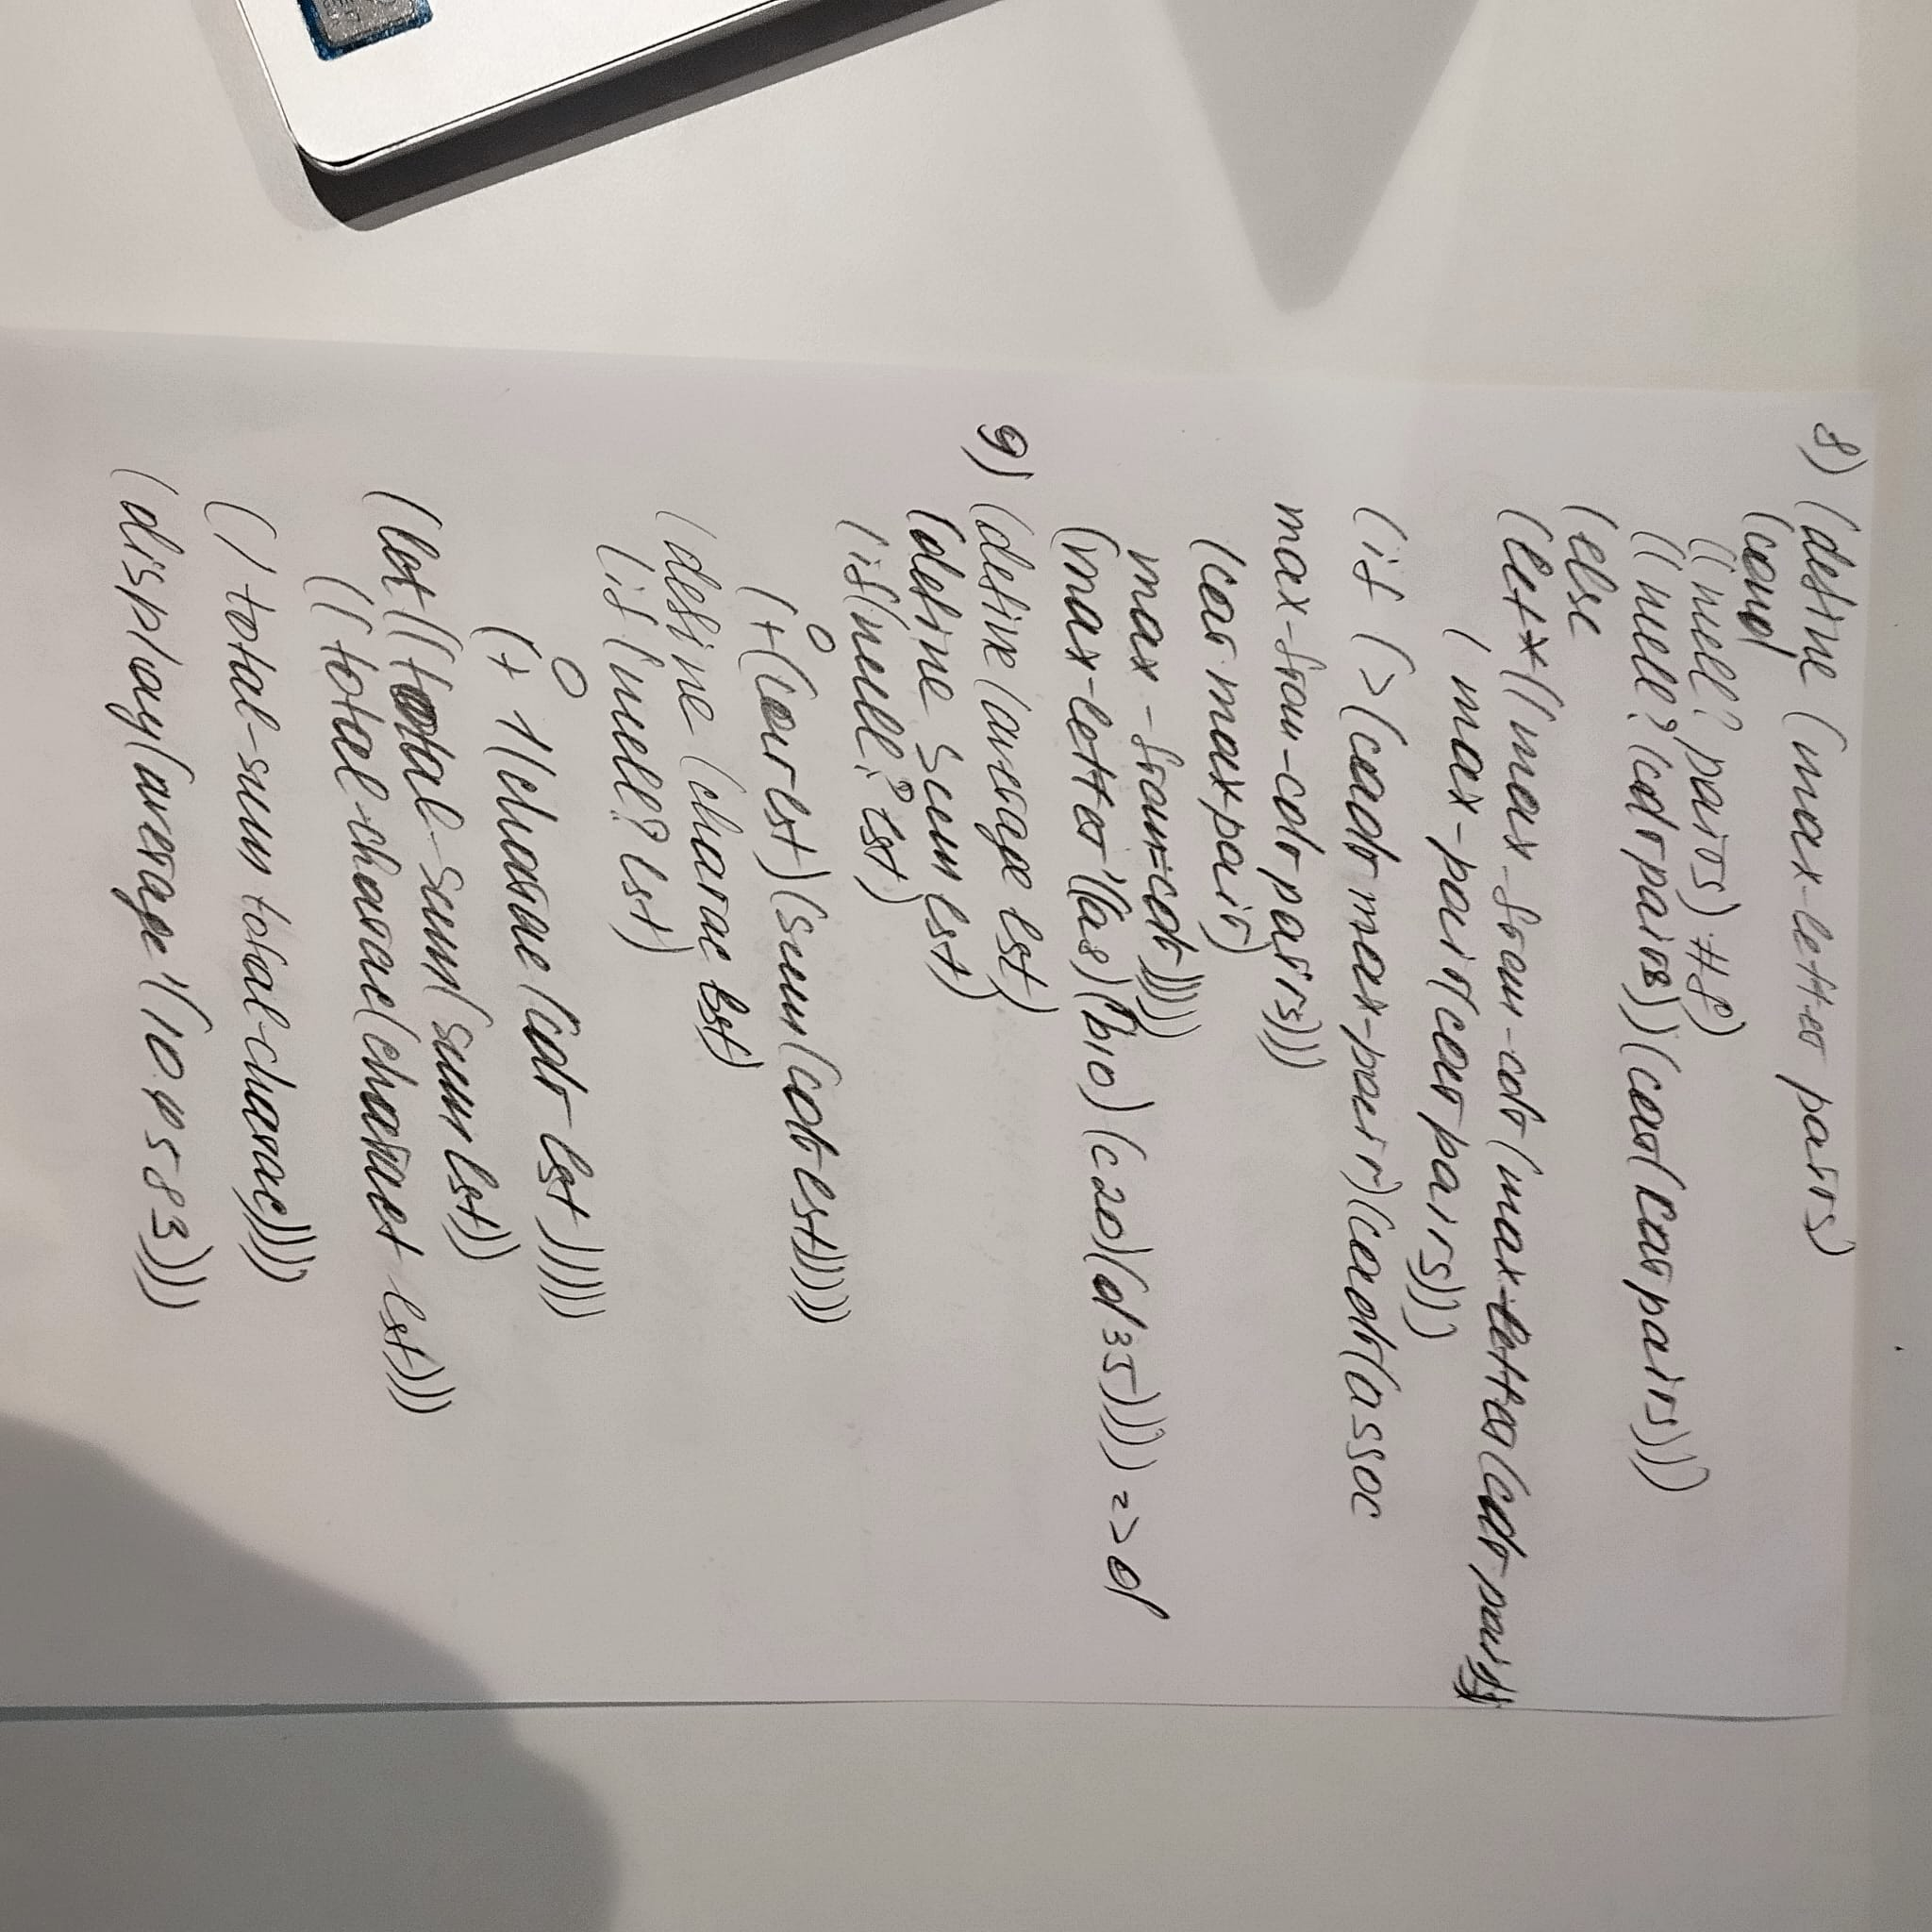 8) (define (max-letter pairs)
(cond
((null? pairs) #f)
((null? (cdr pairs)) (car (car pairs)))
(else
(let* ((max-from-cdr (max-letter (cdr pairs)))
(max-pair (car pairs)))
(if (> (cadr max-pair) (cadr (assoc
max-from-cdr pairs)))
(car max pair)
max-from-cdr)))))
(max-letter '((a s) (b 10) (c 20) (d 35))) => d
9) (define (average lst)
(define sum lst)
(if (null? lst)
0
(+ (car lst) (sum (cdr lst)))))
(define (charac lst)
(if (null? lst)
0
(+ 1 (charac (cdr lst)))))
(let ((total-sum (sum lst))
((total-charac (charact lst)))
(/ total-sum total-charac))))
(display (average '(10 4 5 8 3)))